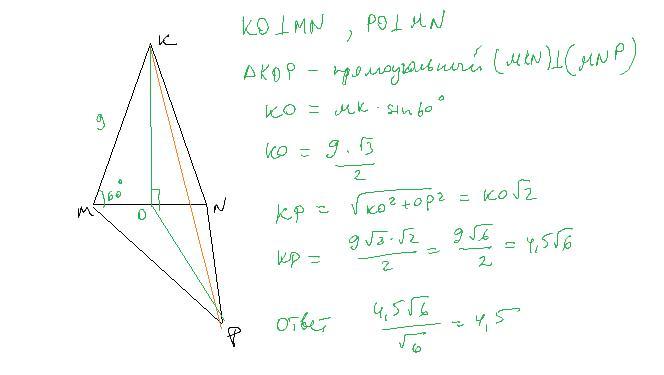 KO⊥MN , PO⊥MN
ΔKOP – прямоугольный (MKN)⊥(MNP)
KO = MK · sin60°
KO = 9·√3 / 2
KP = √KO²+OP² = KO√2
KP = 9√3·√2 / 2 = 9√6 / 2 = 4,5√6
ответ 4,5√6 / √6 = 4,5
K
9
60°
M O N
P